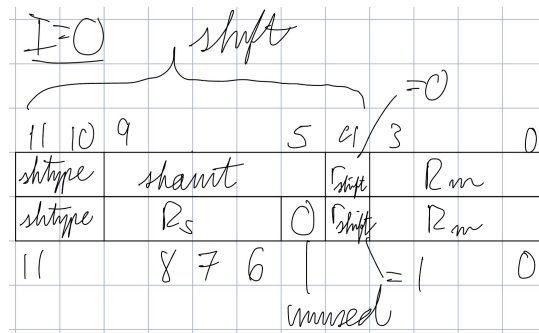 I=0 shift
=0
11 10 9 5 4 3 0
shtype shamt rshift Rm
shtype Rs 0 rshift Rm
11 8 7 6 = 1 0
unused